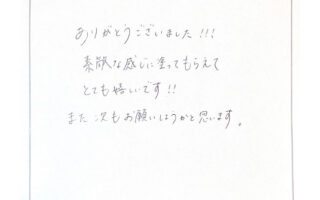 ありがとうございました!!!
素敵な感じに塗ってもらえて
とても嬉しいです!!
また次もお願いしようかと思います。